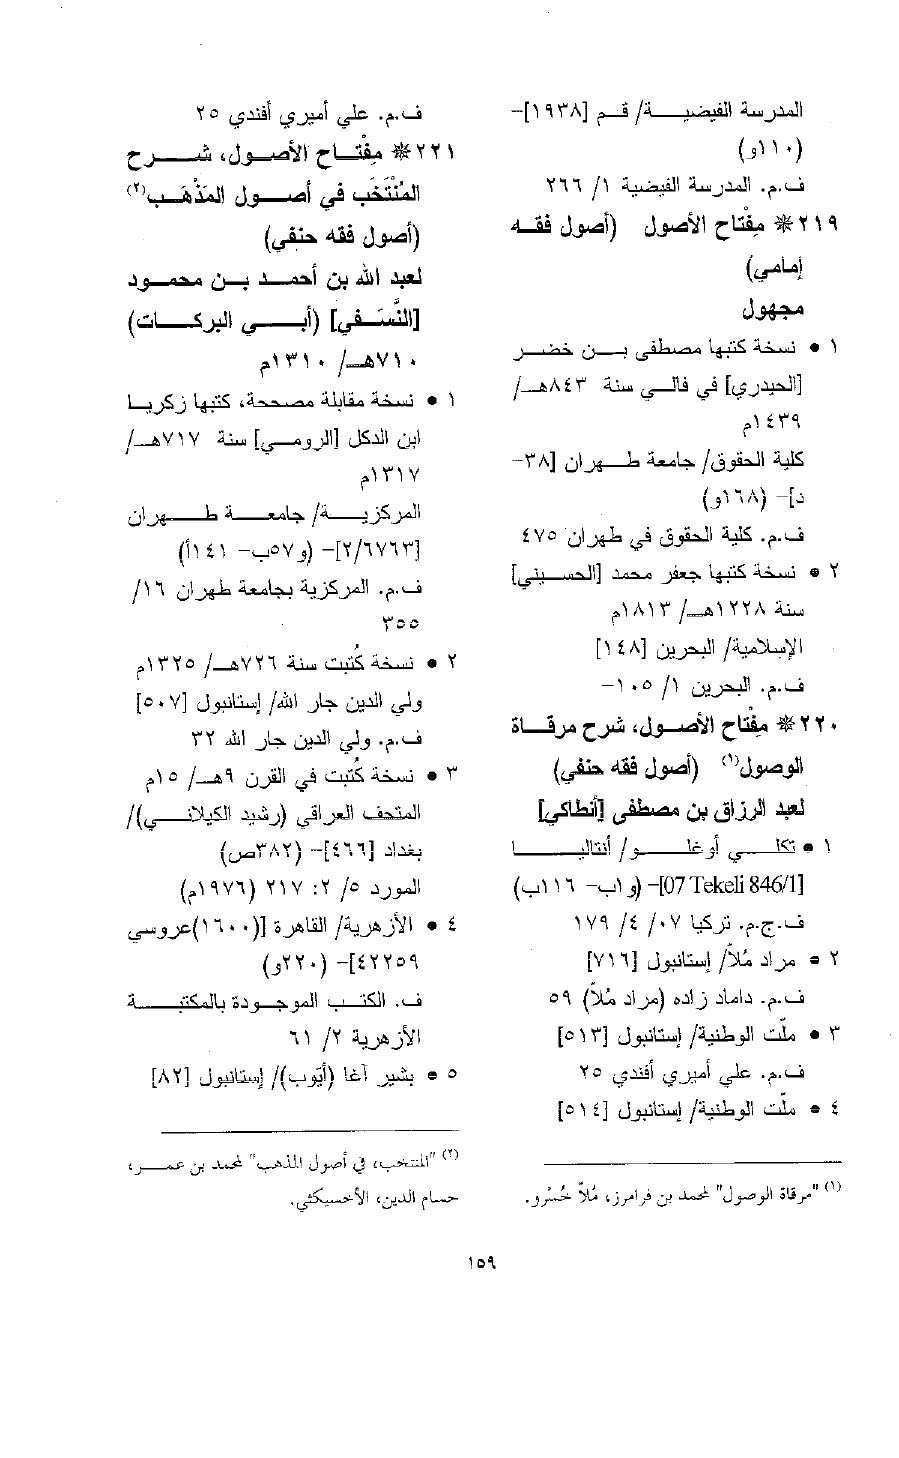 المدرسة الفيضية/ قم [١٩٣٨]-
(١١٠و)
ف.م. المدرسة الفيضية ١/ ٢٦٦
٢١٩* مِفْتاح الأصول (أصول فقه
إمامي)
مجهول
١ • نسخة كتبها مصطفى بن خضر
[الحيدري] في فالي سنة ٨٤٣هـ/
١٤٣٩م
كلية الحقوق/ جامعة طهران [٣٨-
د]- (١٦٨و)
ف.م. كلية الحقوق في طهران ٤٧٥
٢ • نسخة كتبها جعفر محمد [الحسيني]
سنة ١٢٢٨هـ/ ١٨١٣م
الإسلامية/ البحرين [١٤٨]
ف.م. البحرين ١/ ١٠٥-
٢٢٠* مِفْتاح الأصول، شرح مرقاة
الوصول(١) (أصول فقه حنفي)
لعبد الرزاق بن مصطفى [أنطاكي]
١ • تكلي أوغلو/ أنتاليا
[07 Tekeli 846/1]- (و١ب- ١١٦ب)
ف.ج.م. تركيا ٠٧/ ٤/ ١٧٩
٢ • مراد مُلاّ/ إستانبول [٧١٦]
ف.م. داماد زاده (مراد مُلاّ) ٥٩
٣ • ملّت الوطنية/ إستانبول [٥١٣]
ف.م. علي أميري أفندي ٢٥
٤ • ملّت الوطنية/ إستانبول [٥١٤]
(١) "مرقاة الوصول" لمحمد بن فرامرز، مُلاّ خُسْرو.
ف.م. علي أميري أفندي ٢٥
٢٢١* مِفْتاح الأصول، شرح
المُنْتَخَب في أصول المَذْهَب(٢)
(أصول فقه حنفي)
لعبد الله بن أحمد بن محمود
[النَّسَفي] (أبي البركات)
٧١٠هـ/ ١٣١٠م
١ • نسخة مقابلة مصححة، كتبها زكريا
ابن الدكل [الرومي] سنة ٧١٧هـ/
١٣١٧م
المركزية/ جامعة طهران
[٢/٦٧٦٣]- (و٥٧ب- ١٤١أ)
ف.م. المركزية بجامعة طهران ١٦/
٣٥٥
٢ • نسخة كُتبت سنة ٧٢٦هـ/ ١٣٢٥م
ولي الدين جار الله/ إستانبول [٥٠٧]
ف.م. ولي الدين جار الله ٣٢
٣ • نسخة كُتبت في القرن ٩هـ/ ١٥م
المتحف العراقي (رشيد الكيلاني)/
بغداد [٤٦٦]- (٣٨٢ص)
المورد ٥/ ٢: ٢١٧ (١٩٧٦م)
٤ • الأزهرية/ القاهرة [(١٦٠٠)عروسي
٤٢٢٥٩]- (٢٢٠و)
ف. الكتب الموجودة بالمكتبة
الأزهرية ٢/ ٦١
٥ • بشير آغا (أيّوب)/ إستانبول [٨٢]
(٢) "المنتخب، في أصول المذهب" لمحمد بن عمر،
حسام الدين، الأخسيكثي.
١٥٩